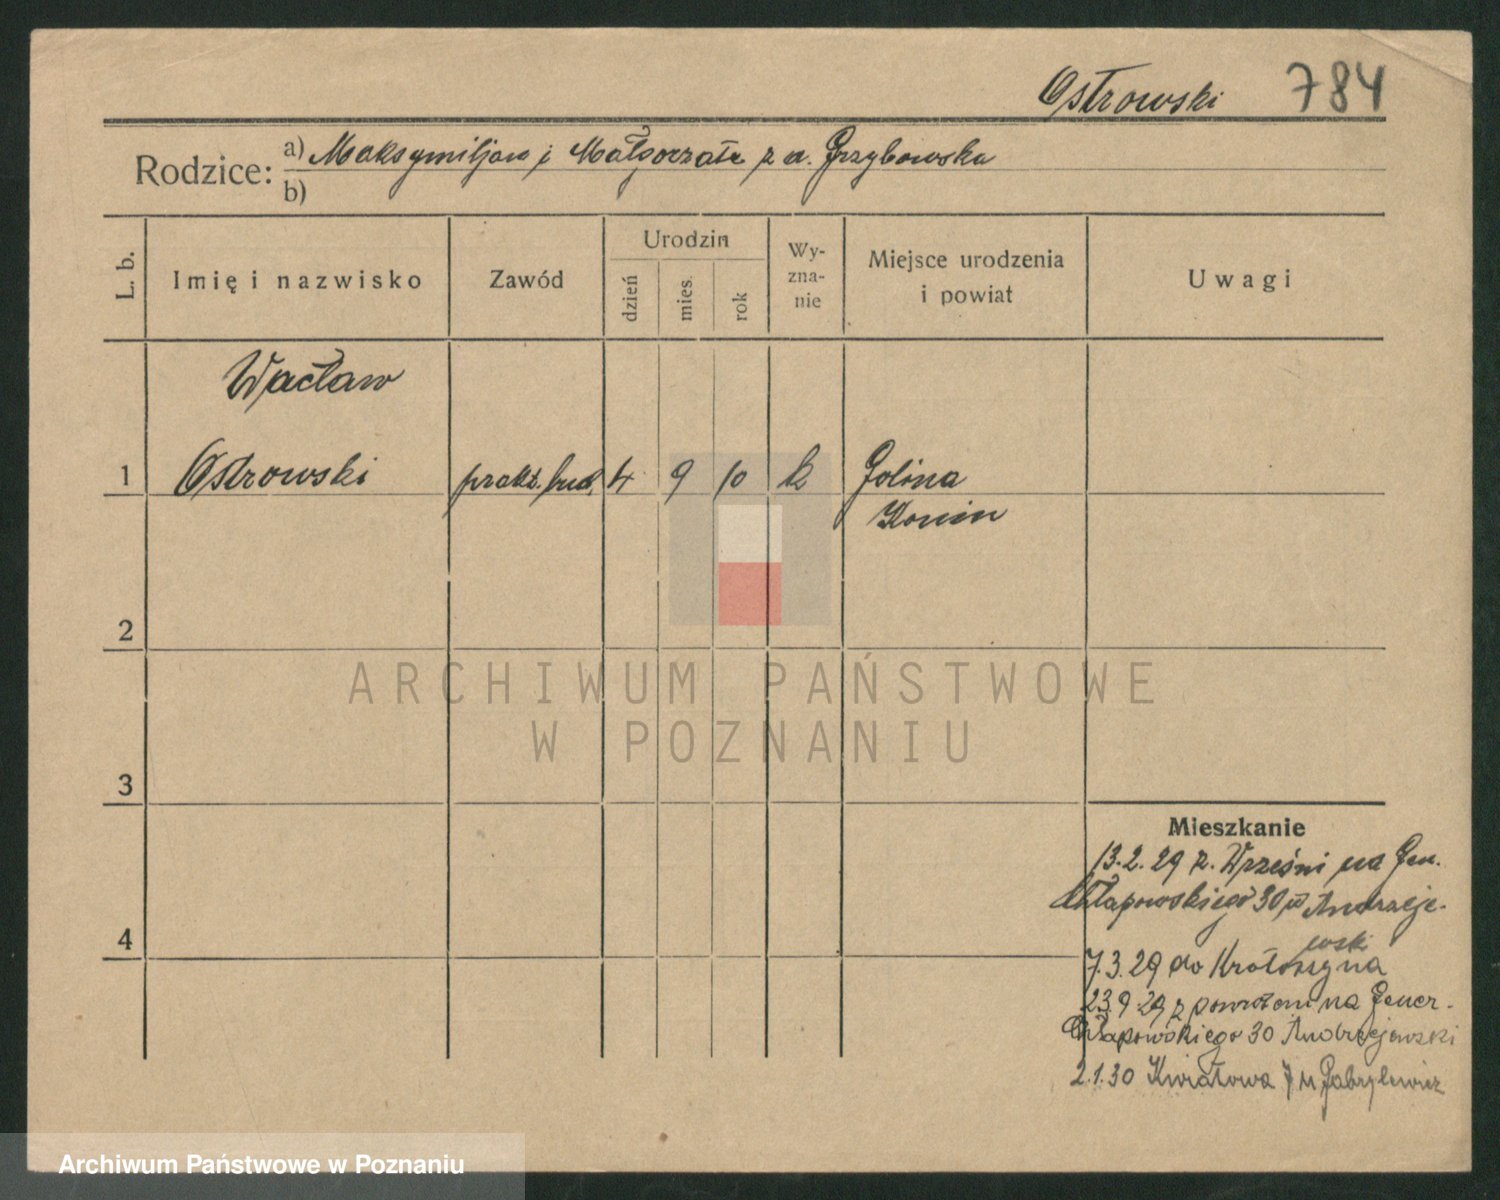 Ostrowski 784
Rodzice: a) Maksymiljan i Małgorzata z d. Grzybowska
b)
L. b. Imię i nazwisko Zawód Urodzin dzień mies. rok Wy-zna-nie Miejsce urodzenia i powiat Uwagi
Wacław
1 Ostrowski prakt. bud. 4 9 10 k Golina
Konin
2
ARCHIWUM PAŃSTWOWE
W POZNANIU
3
Mieszkanie
13.2.29 z Wrześni na Gen.
Chłapowskiego 30 u Andrzeje-
wski
4
7.3.29 do Krotoszyna
23.9.29 z powrotem na Gener.
Chłapowskiego 30 Andrzejewski
2.1.30 Kwiatowa 7 u Gabrylewicz
Archiwum Państwowe w Poznaniu